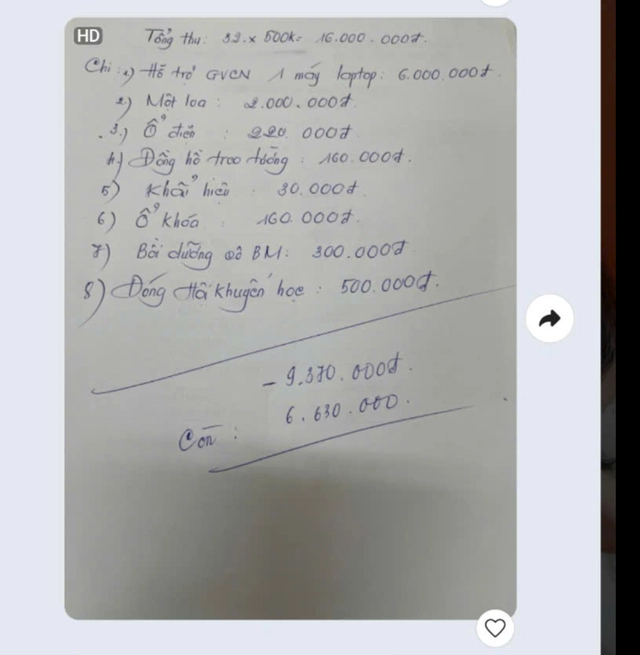 HD
Tổng thu: 32 x 500k = 16.000.000đ.
Chi: 1) Hỗ trợ GVCN 1 máy laptop: 6.000.000đ.
2) Một loa : 2.000.000đ.
3.) Ổ điện : 220.000đ
4) Đồng hồ treo tường : 160.000đ.
5) Khẩu hiệu : 30.000đ.
6) Ổ khóa : 160.000đ.
7) Bồi dưỡng cô BM: 300.000đ
8) Đóng Hội khuyến học : 500.000đ.
- 9.370.000đ.
Còn : 6.630.000.